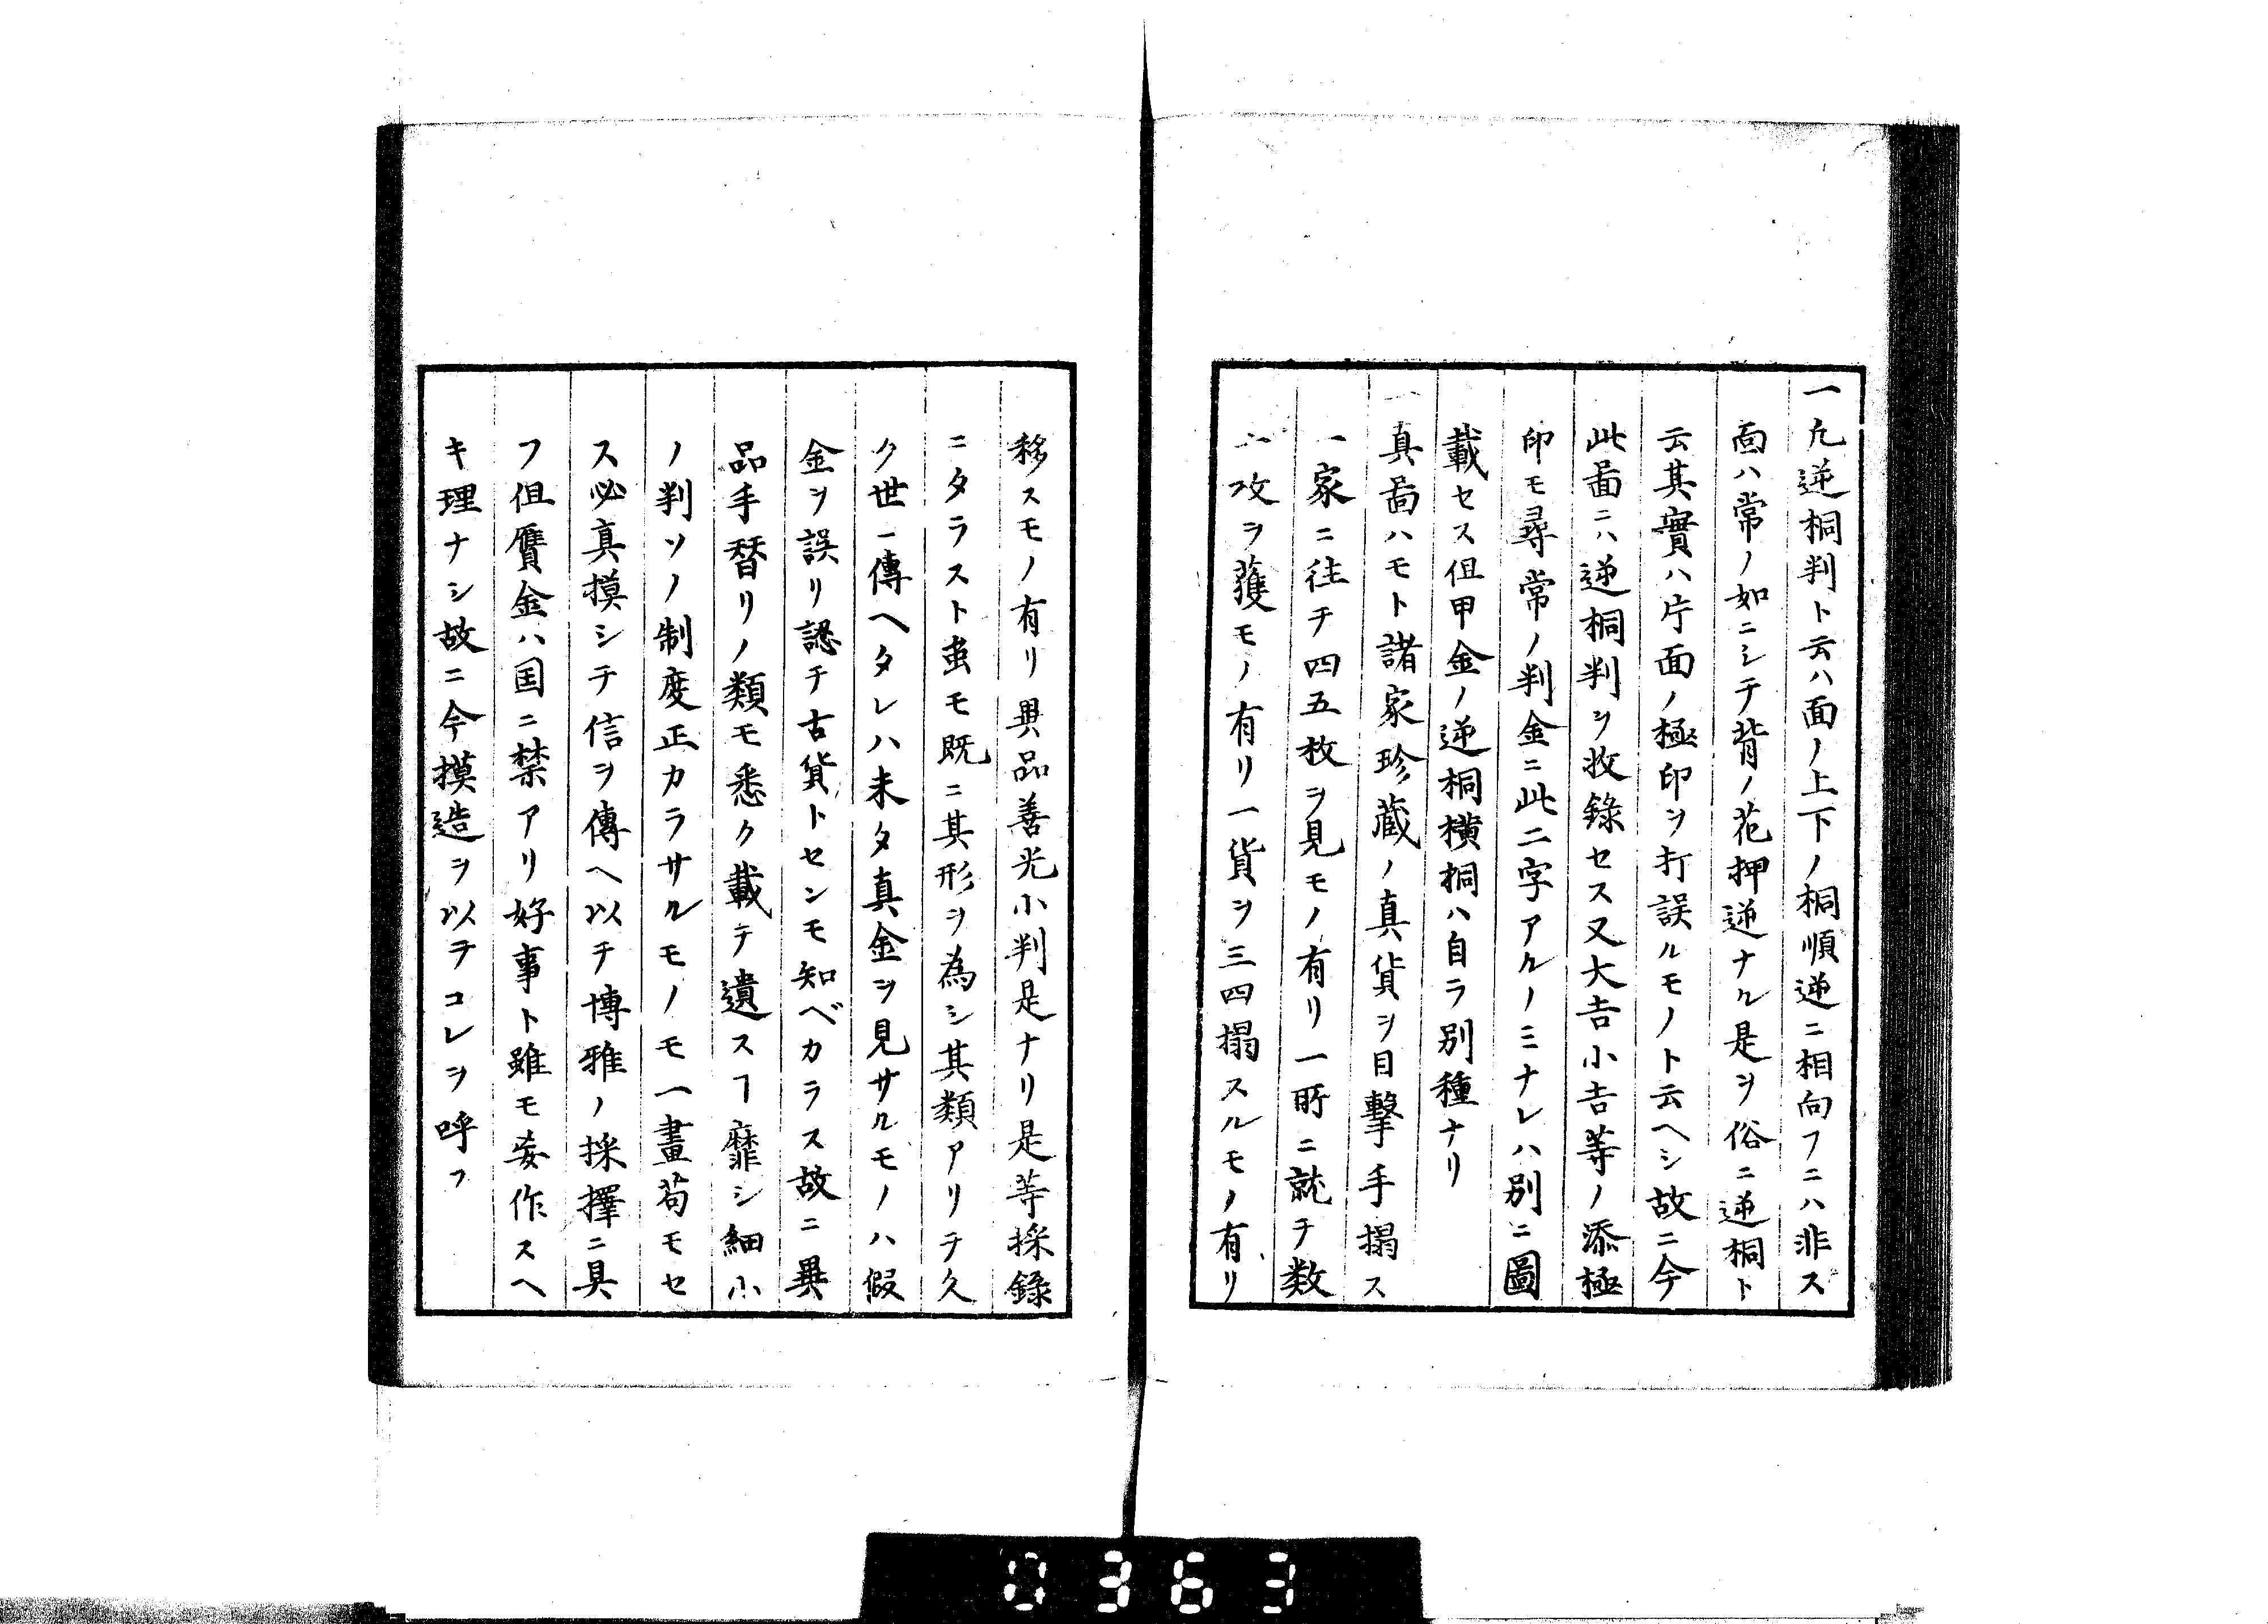 一凢逆桐判ト云ハ面ノ上下ノ桐順逆ニ相向フニハ非ス
面ハ常ノ如ニシテ背ノ花押逆ナル是ヲ俗ニ逆桐ト
云其實ハ片面ノ極印ヲ打誤ルモノト云ヘシ故ニ今
此啚ニハ逆桐判ヲ收錄セス又大吉小吉等ノ添極
印モ尋常ノ判金ニ此二字アルノミナレハ別ニ圖
載セス但甲金ノ逆桐横桐ハ自ラ別種ナリ
一真啚ハモト諸家珍蔵ノ真貨ヲ目擊手搨ス
一家ニ往テ四五枚ヲ見モノ有リ一所ニ就テ数
攻ヲ獲モノ有リ一貨ヲ三四搨スルモノ有リ
移スモノ有リ異品善光小判是ナリ是等採錄
ニタラスト虽モ既ニ其形ヲ為シ其類アリテ久
ク世ニ傳ヘタレハ未タ真金ヲ見サルモノハ假
金ヲ誤リ認テ古貨トセンモ知ベカラス故ニ異
品手替リノ類モ悉ク載テ遺スヿ靡シ細小
ノ判ソノ制度正カラサルモノモ一畫苟モセ
ス必真摸シテ信ヲ傳ヘ以テ博雅ノ採擇ニ具
フ但贋金ハ国ニ禁アリ好事ト雖モ妄作スヘ
キ理ナシ故ニ今摸造ヲ以テコレヲ呼フ
0363